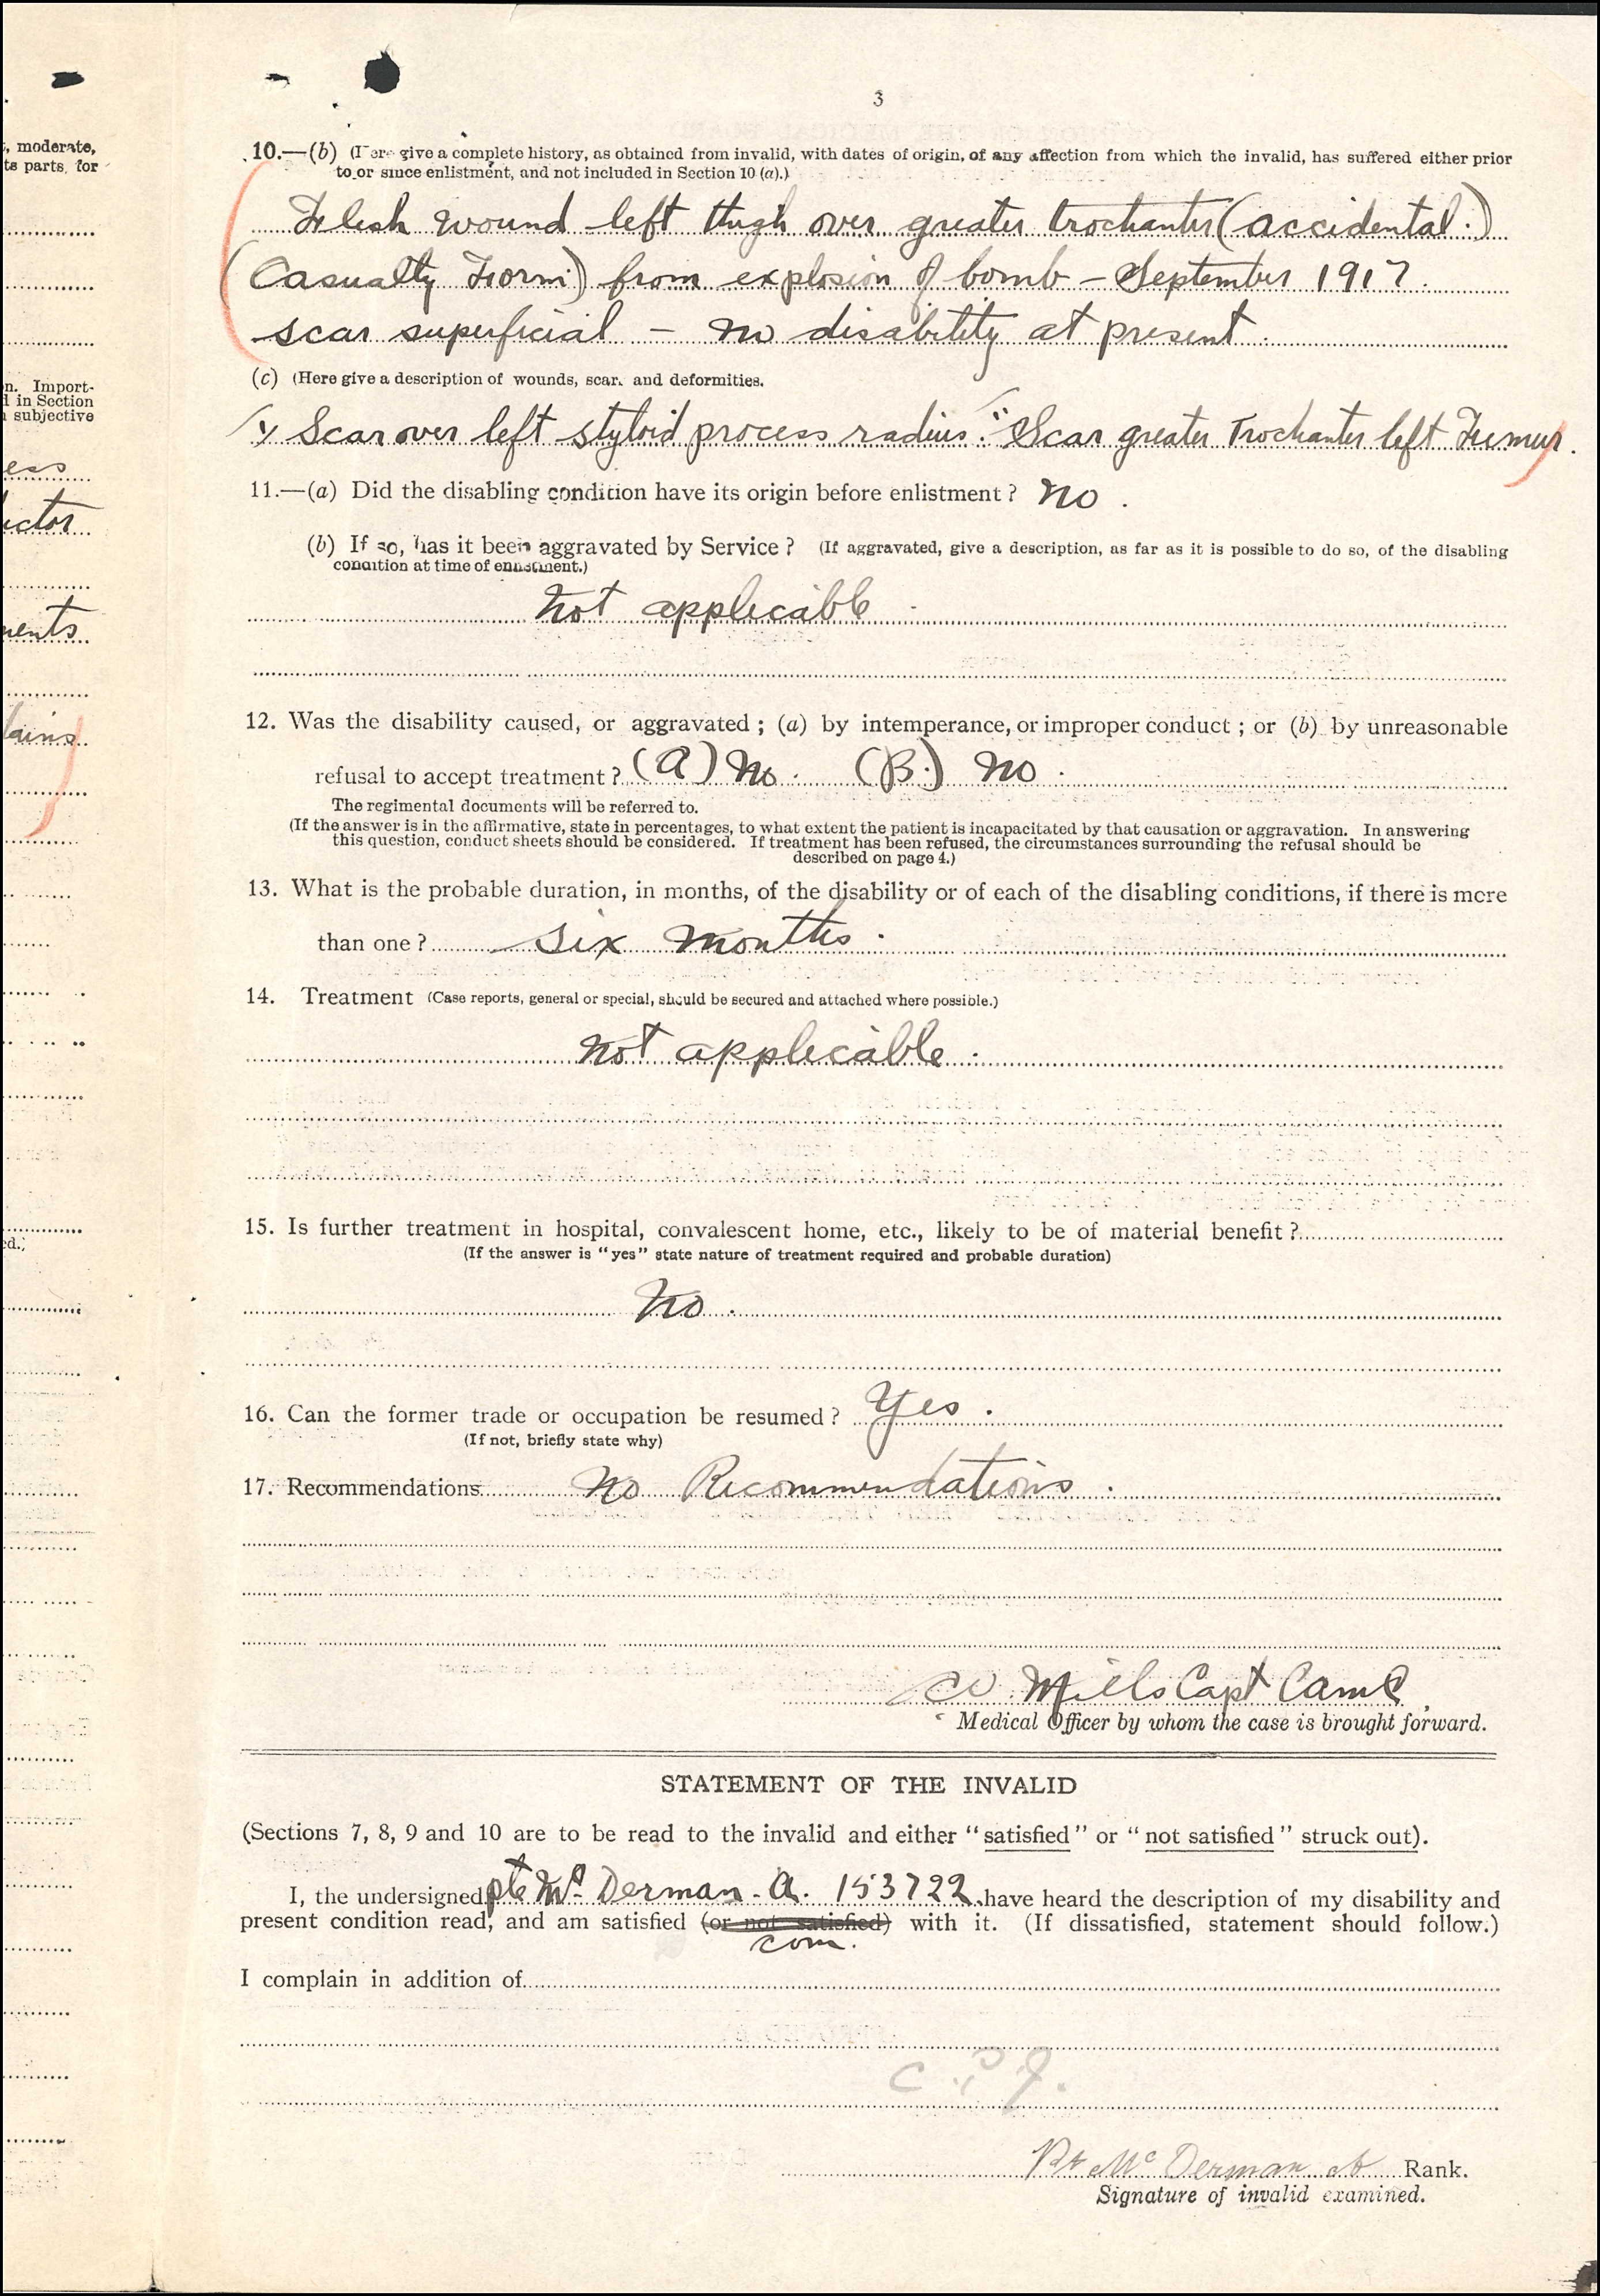 3
, moderate,
ts parts, for
n. Import-
d in Section
subjective
ess
ector
ments
lains
ed.;
10.—(b) (Here give a complete history, as obtained from invalid, with dates of origin, of any affection from which the invalid, has suffered either prior
to or since enlistment, and not included in Section 10 (a).)
Flesh wound left thigh over greater trochanter (accidental.)
(Casualty Form) from explosion of bomb – September 1917.
scar superficial – no disability at present.
(c) (Here give a description of wounds, scars and deformities.
Scar over left styloid process radius. " Scar greater Trochanter left Fumur.
11.—(a) Did the disabling condition have its origin before enlistment? No.
(b) If so, has it been aggravated by Service? (If aggravated, give a description, as far as it is possible to do so, of the disabling
condition at time of enlistment.)
Not applicable.
12. Was the disability caused, or aggravated; (a) by intemperance, or improper conduct; or (b) by unreasonable
refusal to accept treatment? (A) No. (B.) No.
The regimental documents will be referred to.
(If the answer is in the affirmative, state in percentages, to what extent the patient is incapacitated by that causation or aggravation. In answering
this question, conduct sheets should be considered. If treatment has been refused, the circumstances surrounding the refusal should be
described on page 4.)
13. What is the probable duration, in months, of the disability or of each of the disabling conditions, if there is more
than one? Six months.
14. Treatment (Case reports, general or special, should be secured and attached where possible.)
Not applicable.
15. Is further treatment in hospital, convalescent home, etc., likely to be of material benefit?
(If the answer is "yes" state nature of treatment required and probable duration)
No.
16. Can the former trade or occupation be resumed? Yes.
(If not, briefly state why)
17. Recommendations No Recommendations.
Mills Capt CAMC
Medical Officer by whom the case is brought forward.
STATEMENT OF THE INVALID
(Sections 7, 8, 9 and 10 are to be read to the invalid and either "satisfied" or "not satisfied" struck out).
I, the undersigned Pte McDerman. A. 153722 have heard the description of my disability and
present condition read, and am satisfied (or not satisfied) with it. (If dissatisfied, statement should follow.)
I complain in addition of
Pt McDerman A Rank.
Signature of invalid examined.